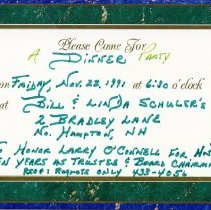 Please Come For
A DINNER PARTY
on FRIDAY, NOV. 22, 1991 at 6:30 o'clock
at BILL & LINDA SCHULER'S
2 BRADLEY LANE
NO. HAMPTON, NH
TO HONOR LARRY O'CONNELL FOR HIS
TEN YEARS AS TRUSTEE & BOARD CHAIRMAN
RSVP: REGRETS ONLY 433-4056